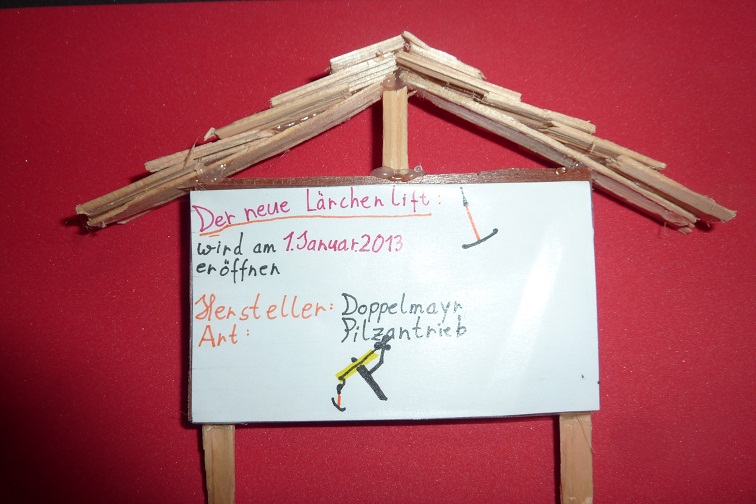 Der neue Lärchenlift:
wird am 1.Januar2013
eröffnen
Hersteller: Doppelmayr
Art: Pilzantrieb